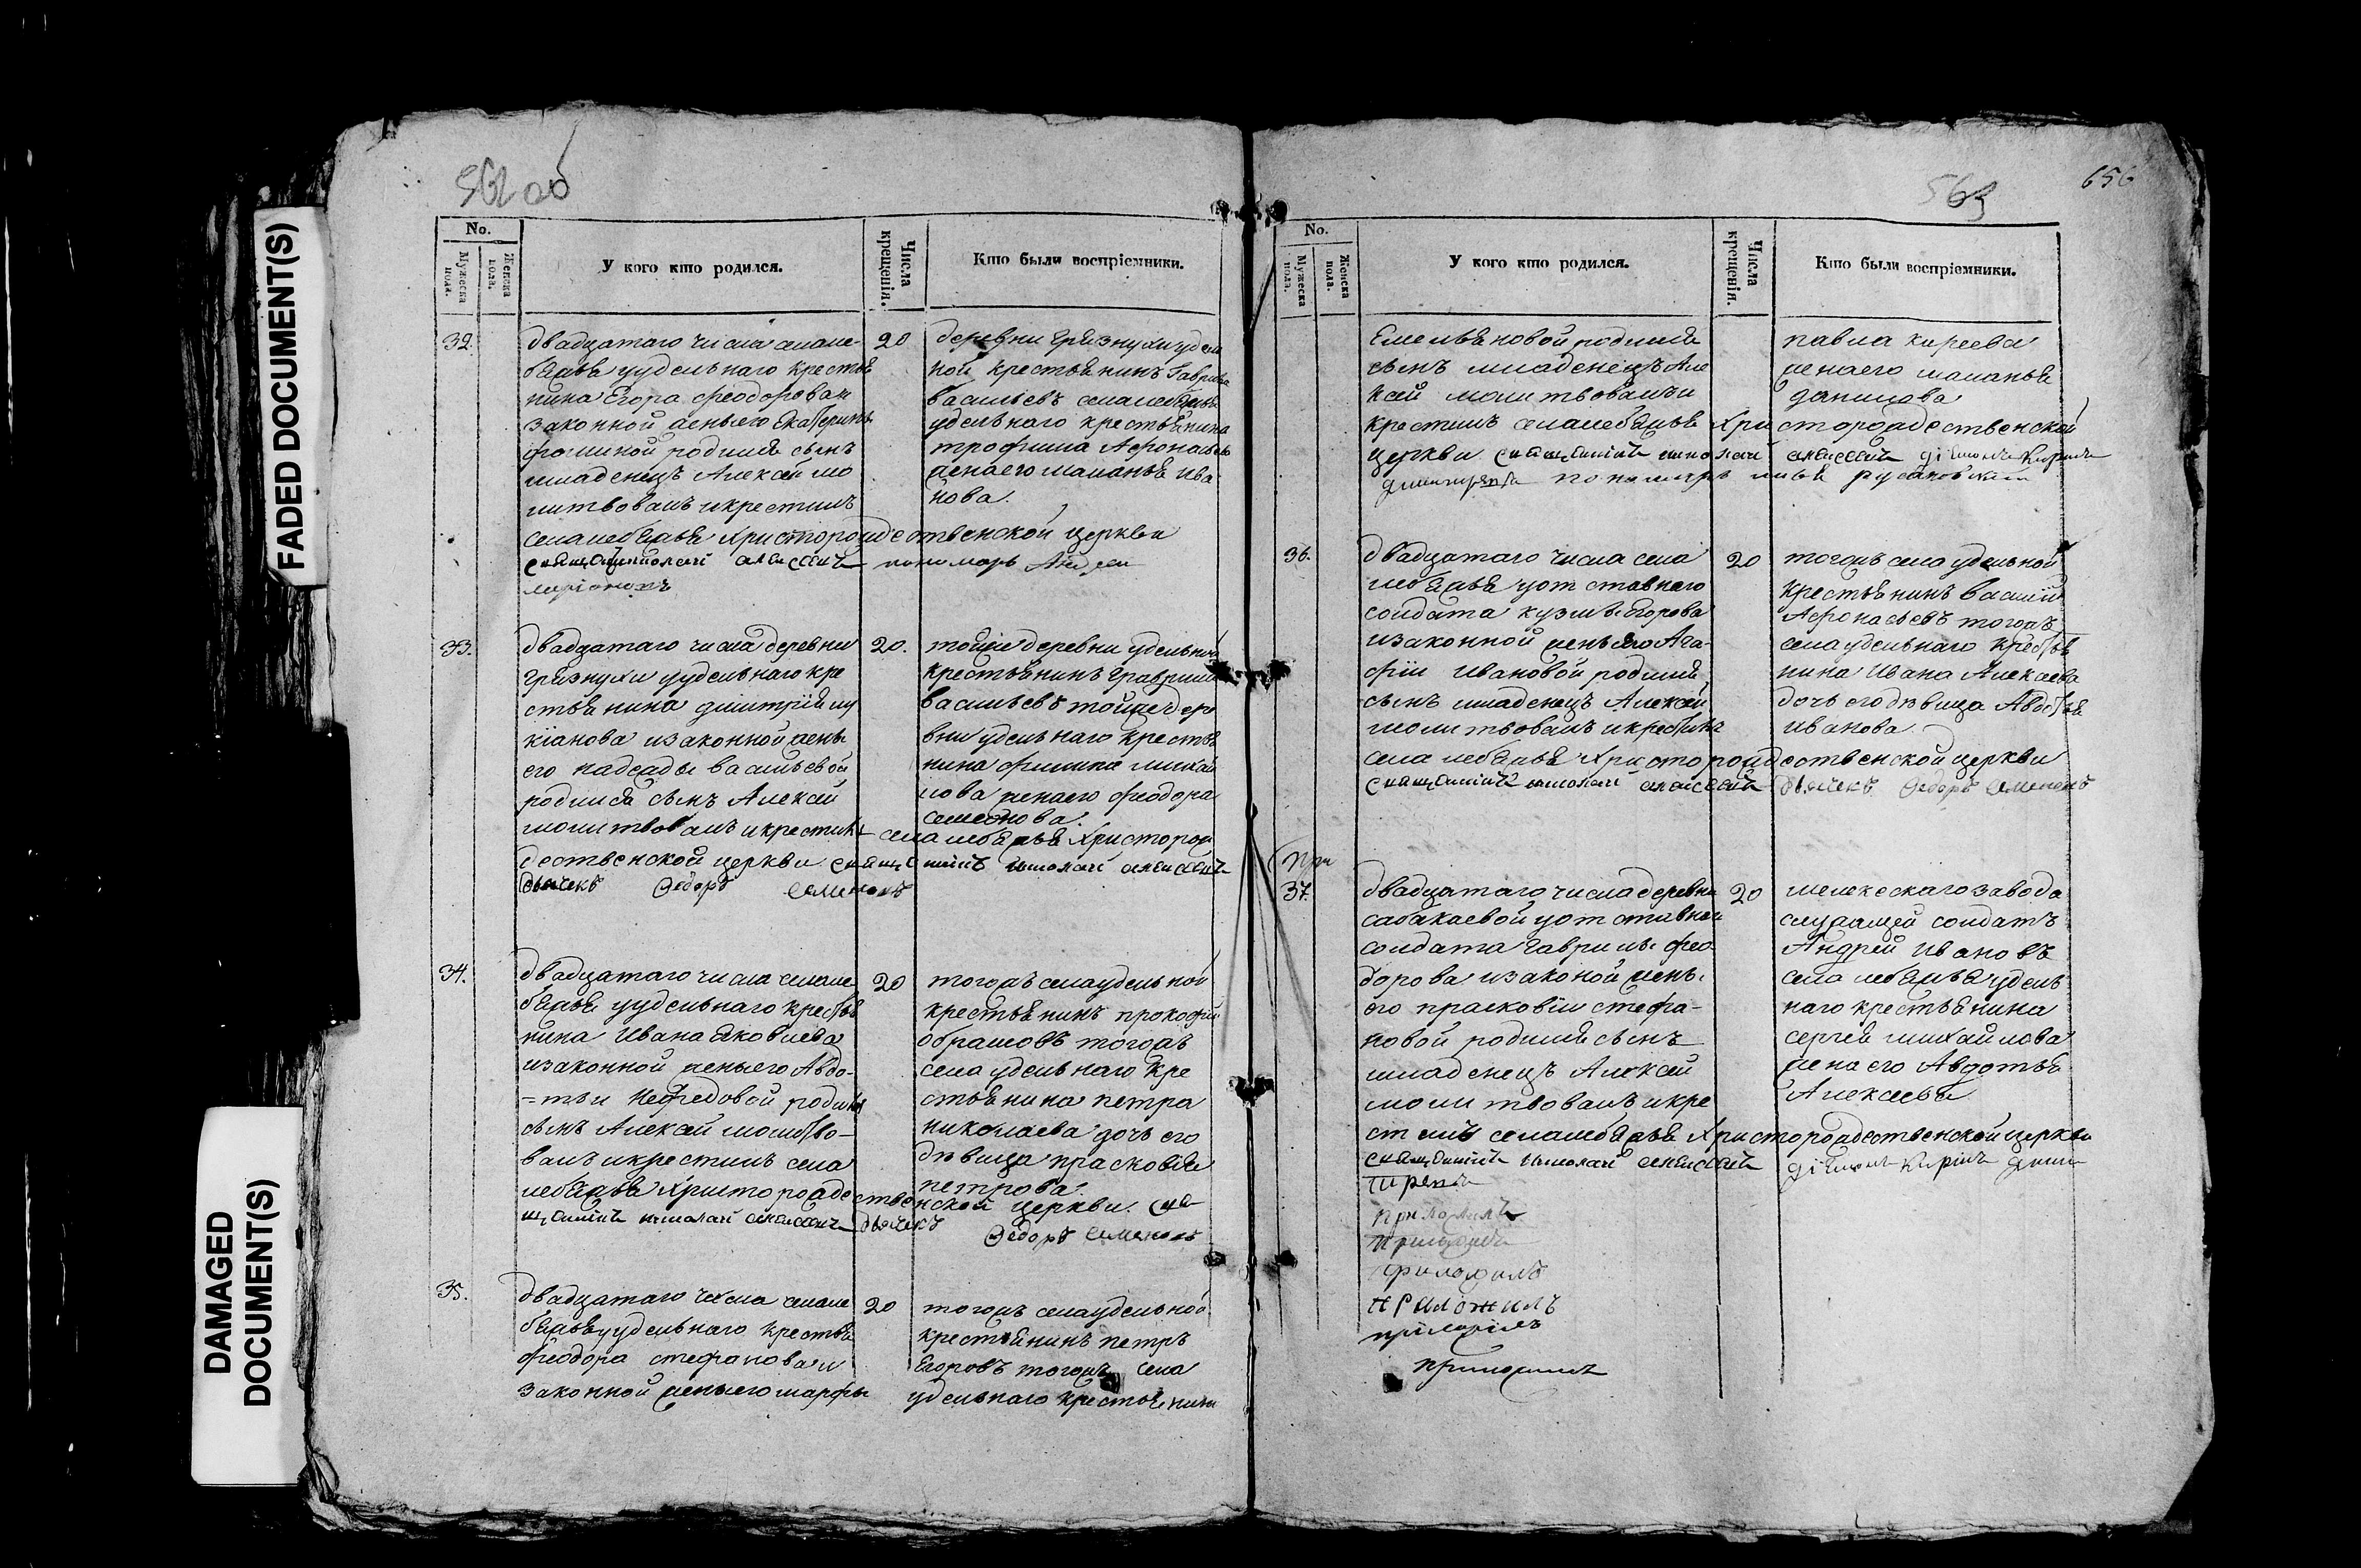 FADED DOCUMENT(S)
DAMAGED
DOCUMENT(S)
562 об
No.
Мужеска пола.
Женска пола.
У кого кто родился.
Числа крещенія.
Кто были воспріемники.
32.
двадцатаго числа села ле
бяжья у удельнаго крестья
нина Егора Феодорова и
законной жены его Екатерины
Фоминой родился сынъ
младенецъ Алексей мо
литвовалъ и крестилъ
села лебяжья Христорождественской церкви
священникъ николай алексеевъ пономарь Андреи
20
деревни Грязнухи удель
ной крестьянинъ Гаврила
васильевъ села лебяжья
удельнаго крестьянина
трофима Афонасьева
жена его маланья Ива
нова.
33.
двадцатаго числа деревни
Грязнухи у удельнаго кре
стьянина димитрія лу
кіанова и законной жены
его надежды васильевой
родился сынъ Алексей
молитвовалъ и крестилъ села лебяжья Христорож
дественской церкви священникъ николай алексеевъ
дьячекъ Федоръ Семеновъ
20.
тойже деревни удельной
крестьянинъ Гаврила
васильевъ тойже дере
вни удельнаго крестья
нина Филипа михаи
лова жена его Феодора
семенова.
34.
двадцатаго числа села ле
бяжья у удельнаго крестья
нина Ивана Яковлева
и законной жены его Авдо-
=тьи Нефедовой родился
сынъ Алексей молитво-
валъ и крестилъ села
лебяжья Христорождественской церкви. свя
щенникъ николай алексеевъ дьячекъ
Федоръ Семеновъ
20
тогожъ села удельной
крестьянинъ прокофий
обрамовъ тогожъ
села удельнаго кре
стьянина петра
николаева дочь его
девица прасковія
петрова.
35.
двадцатаго числа села ле
бяжья у удельнаго крестья
Феодора стефанова и
законной жены его марфы
20
тогожъ села удельной
крестьянинъ петръ
Егоровъ тогожъ села
удельнаго крестьянина
563
656
No.
Мужеска пола.
Женска пола.
У кого кто родился.
Числа крещенія.
Кто были воспріемники.
Емельяновой родился
сынъ младенецъ Але
ксей молитвовалъ и
крестилъ села лебяжья Христорождественской
церкви священникъ николай алексеевъ діаконъ Киръ
павла киреева
жена его маланья
данилова
36.
двадцатаго числа села
лебяжья у отставнаго
солдата кузмы Егорова
и законной жены его Ага-
фіи Ивановой родился
сынъ младенецъ Алексей
молитвовалъ и крестилъ
села лебяжья Христорождественской церкви
священникъ николай алексеевъ дьячекъ Федоръ Семеновъ
20
тогожъ села удельной
крестьянинъ василій
Афонасьевъ тогожъ
села удельнаго крестья
нина Ивана Алексеева
дочь его девица Авдотья
иванова
При
37.
двадцатаго числа деревни
сабакаевой у отставнаго
солдата Гаврилы фео
дорова и законой жены
его прасковіи стефа-
новой родился сынъ
младенецъ Алексей
молитвовалъ и кре
стилъ села лебяжья Христорождественской церкви
священникъ николай алексеевъ діаконъ Киръ дими
тріевъ
20
мелекескаго завода
служащей солдатъ
Андрей Ивановъ
села лебяжья удель
наго крестьянина
сергея михайлова
жена его Авдотья
Алексеева
приложилъ
приложилъ
приложилъ
приложилъ